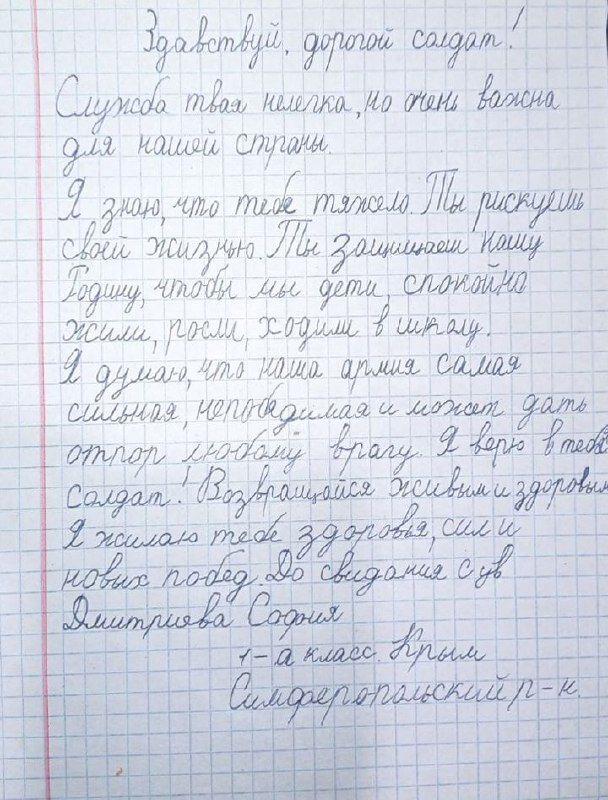 Здавствуй, дорогой солдат!
Служба твая нелегка, но очень важна
для нашей страны.
Я знаю, что тебе тяжело. Ты рискуешь
своей жизнью. Ты защищаеш нашу
Родину, чтобы мы дети, спокойно
жили, росли, ходили в школу.
Я думаю, что наша армия самая
сильная, непобедимая и может дать
отпор любому врагу. Я верю в тебя
солдат! Возвращайся живым и здоровым
Я жилаю тебе здоровья, сил и
новых побед. До свидания с ув
Дмитриева София
1-а класс. Крым
Симферопольский р-н.